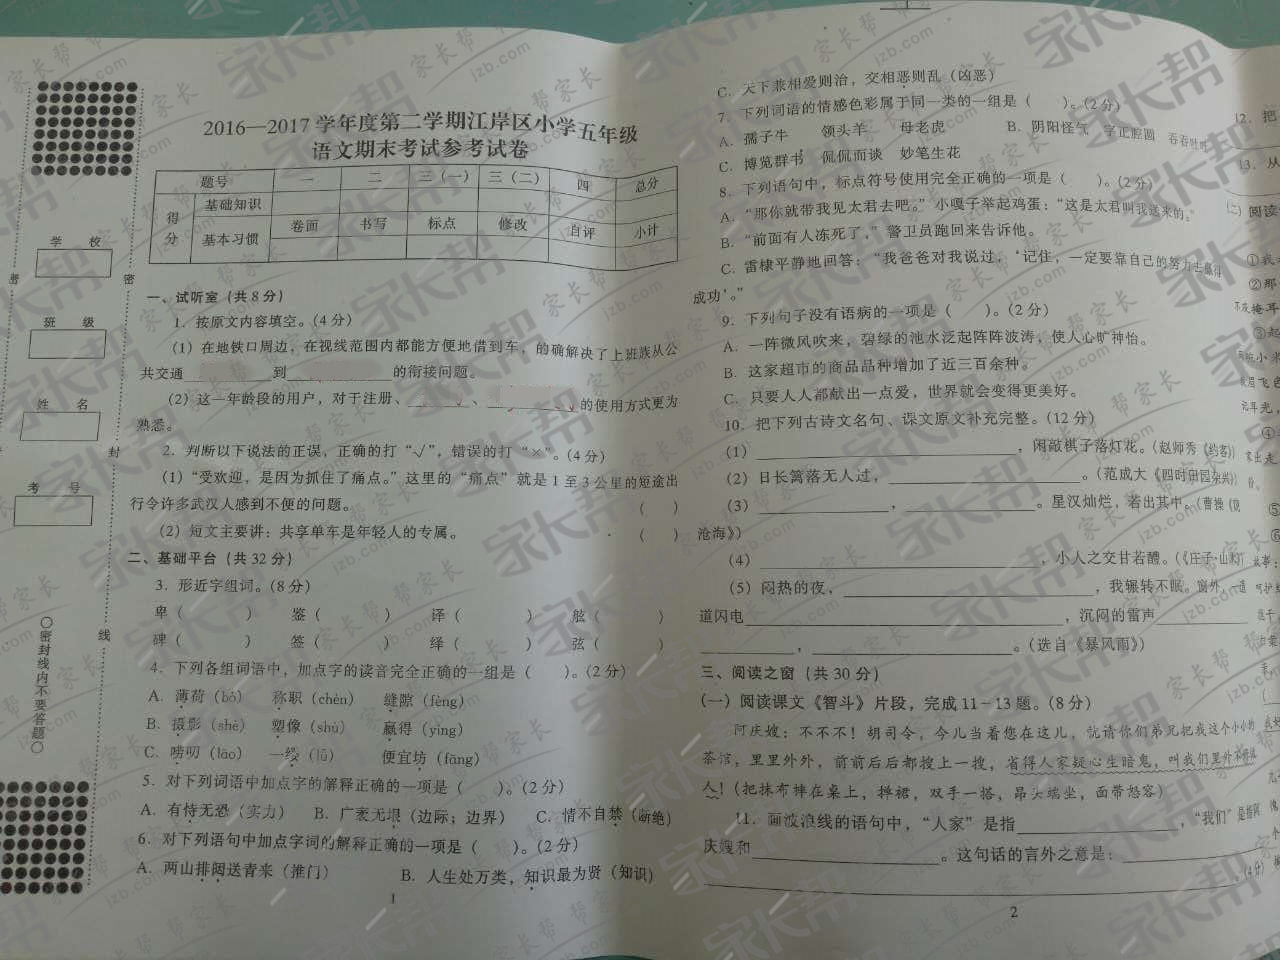 2016—2017 学年度第二学期江岸区小学五年级
语文期末考试参考试卷
题号 一 二 三(一) 三(二) 四 总分
得分 基础知识
基本习惯 卷面 书写 标点 修改 自评 小计
学 校
班 级
姓 名
考 号
密 封 线
○密封线内不要答题○
一、试听室(共 8 分)
1. 按原文内容填空。(4 分)
(1) 在地铁口周边，在视线范围内都能方便地借到车，的确解决了上班族从公
共交通 到 的衔接问题。
(2) 这一年龄段的用户，对于注册、 、 的使用方式更为
熟悉。
2. 判断以下说法的正误，正确的打“√”，错误的打“×”。(4 分)
(1)“受欢迎，是因为抓住了痛点。”这里的“痛点”就是 1 至 3 公里的短途出
行令许多武汉人感到不便的问题。 ( )
(2) 短文主要讲：共享单车是年轻人的专属。 ( )
二、基础平台(共 32 分)
3. 形近字组词。(8 分)
卑( ) 鉴( ) 译( ) 舷( )
碑( ) 签( ) 绎( ) 弦( )
4. 下列各组词语中，加点字的读音完全正确的一组是( )。(2 分)
A. 薄荷(bò) 称职(chèn) 缝隙(fèng)
B. 摄影(shè) 塑像(shù) 赢得(yìng)
C. 唠叨(lāo) 一绺(lǚ) 便宜坊(fāng)
5. 对下列词语中加点字的解释正确的一项是( )。(2 分)
A. 有恃无恐(实力) B. 广袤无垠(边际；边界) C. 情不自禁(断绝)
6. 对下列语句中加点字词的解释正确的一项是( )。(2 分)
A. 两山排闼送青来(推门) B. 人生处万类，知识最为贤(知识)
1
C. 天下兼相爱则治，交相恶则乱(凶恶)
7. 下列词语的情感色彩属于同一类的一组是( )。(2 分)
A. 孺子牛 领头羊 母老虎 B. 阴阳怪气 字正腔圆 吞吞吐吐
C. 博览群书 侃侃而谈 妙笔生花
8. 下列语句中，标点符号使用完全正确的一项是( )。(2 分)
A. “那你就带我见太君去吧。”小嘎子举起鸡蛋：“这是太君叫我送来的。”
B. “前面有人冻死了，”警卫员跑回来告诉他。
C. 雷棣平静地回答：“我爸爸对我说过，‘记住，一定要靠自己的努力去赢得
成功’。”
9. 下列句子没有语病的一项是( )。(2 分)
A. 一阵微风吹来，碧绿的池水泛起阵阵波涛，使人心旷神怡。
B. 这家超市的商品品种增加了近三百余种。
C. 只要人人都献出一点爱，世界就会变得更美好。
10. 把下列古诗文名句、课文原文补充完整。(12 分)
(1) ，闲敲棋子落灯花。(赵师秀《约客》)
(2) 日长篱落无人过， 。(范成大《四时田园杂兴》)
(3) ， 。星汉灿烂，若出其中。(曹操《观
沧海》)
(4) ，小人之交甘若醴。(《庄子·山木》)
(5) 闷热的夜， ，我辗转不眠。窗外，一道
道闪电 ，沉闷的雷声
， 。(选自《暴风雨》)
三、阅读之窗(共 30 分)
(一) 阅读课文《智斗》片段，完成 11－13 题。(8 分)
阿庆嫂：不不不！胡司令，今儿当着您在这儿，就请你们弟兄把我这个小小的
茶馆，里里外外，前前后后都搜上一搜，省得人家疑心生暗鬼，叫我们里外不好做
人！(把抹布摔在桌上，掸裙，双手一搭，昂头端坐，面带怒容)
11. 画波浪线的语句中，“人家”是指 ，“我们”是指阿
庆嫂和 。这句话的言外之意是：
。(4 分)
2
12. 把
13. 从
(二) 阅读